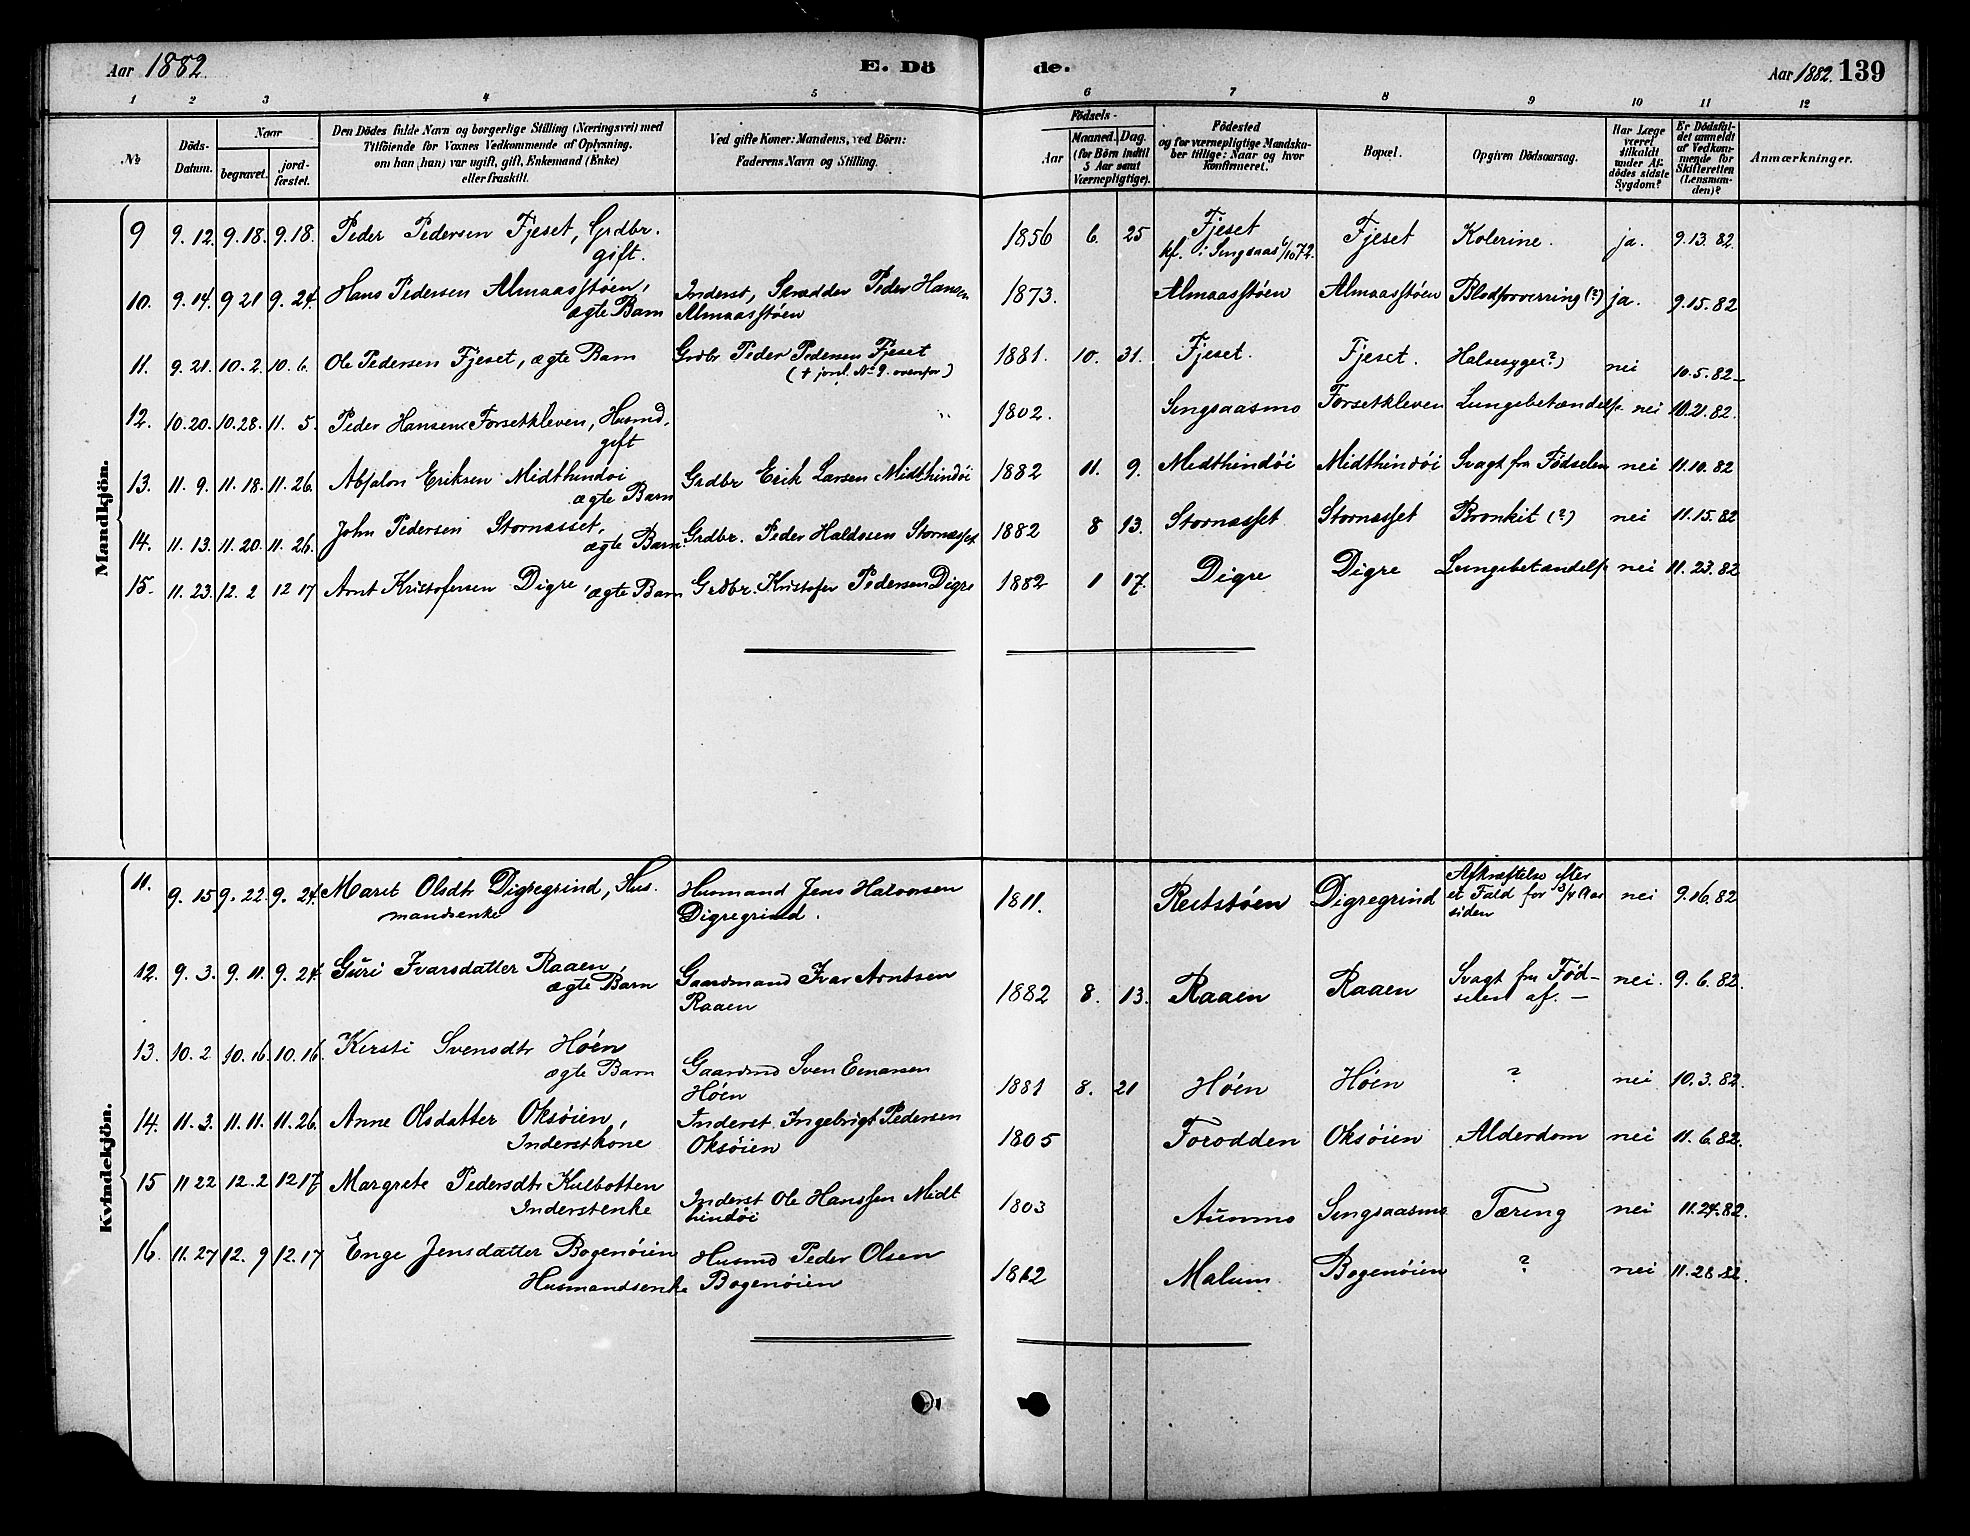 Aar 1882. E. Dö de. Aar 1882. 139
1 2 3 4 5 6 7 8 9 10 11 12
№ Döds-Datum. Naar begravet. jord-fæstet. Den Dödes fulde Navn og borgerlige Stilling (Næringsvei) med Tilföiende for Voxnes Vedkommende af Oplysning, om han (hun) var ugift, gift, Enkemand (Enke) eller fraskilt. Ved gifte Koner: Mandens, ved Börn: Faderens Navn og Stilling. Födsels- Aar Maaned. Dag. (for Börn indtil 5 Aar samt Værnepligtige). Födested og for værnepligtige Mandskaber tillige: Naar og hvor Konfirmeret. Bopæl. Opgiven Dödsaarsag. Har Læge været tilkaldt under Afdödes sidste Sygdom? Er Dödsfaldet anmeldt af Vedkommende for Skifteretten (Lensmanden)? Anmærkninger.
Mandkjön.
9 9.12. 9.18. 9.18. Peder Pedersen Fjeset, Grdbr. gift. 1856 6. 25 Fjeset kf. i Singsaas 6/10 72. Fjeset Kolerine. ja. 9.13.82.
10. 9.14. 9 21 9.24. Hans Pedersen Almaasstøen, ægte Barn Inderst, Skrædder Peder Hansen Almaasstøen 1873. Almaasstøen Almaasstøen Blodforverring (?) ja. 9.15.82
11. 9.21. 10.2. 10.6. Ole Pedersen Fjeset, ægte Barn Grdbr Peder Pedersen Fjeset († jvnf. No 9. ovenfor) 1881. 10. 31. Fjeset. Fjeset. Halsesyge(?) nei 10.5.82
12. 10.20. 10.28. 11. 5. Peder Hansen Forsetkleven, Husmd. gift " 1802. Singsaasmo Forsetkleven Lungebetændelse nei 10.21.82.
13. 11.9. 11.18. 11.26. Absalon Eriksen Midthindøi ægte Barn Grdbr Erik Larsen Midthindøi 1882 11. 9. Midthindøi Midthindøi Svagt fra Fødselen nei 11.10.82
14. 11.13. 11.20. 11.26. John Pedersen Stornæsset, ægte Barn. Grdbr. Peder Haldosen Stornæsset 1882 8 13. Stornæsset Stornæsset Bronkit (?) nei 11.15.82
15. 11.23. 12.2 12 17 Arnt Kristofersen Digre, ægte Barn Grdbr. Kristofer Pedersen Digre 1882 1 17. Digre Digre Lungebetændelse nei 11.23.82
Kvindekjön.
11. 9.15 9.22. 9.24. Maret Olsdtr Digregrind, Husmandsenke Husmand Jens Halvorsen Digregrind. 1811. Reitstøen Digregrind Afkræftelse efter et Fald for 3/4 Aar siden nei 9.16.82
12. 9.3. 9.11. 9.24. Guri Ivarsdatter Raaen, ægte Barn Gaardmand Ivar Arntsen Raaen 1882 8. 13. Raaen Raaen Svagt fra Fødselen af. nei. 9.6.82.
13. 10.2 10.16. 10.16. Kirsti Svensdtr Høen ægte Barn Gaardmd Sven Einarsen Høen 1881 8. 21 Høen Høen ? nei 10.3.82.
14. 11.3. 11.11. 11.26. Anne Olsdatter Oksøien, Inderstkone Inderst Ingebrigt Pedersen Oksøien 1805 Forodden Oksøien Alderdom nei 11.6.82.
15 11 22 12.2 12 17 Margrete Pedersdtr Kulbotten Inderstenke Inderst Ole Hanssen Midthindøi 1803 Aunmo Singsaasmo Tæring nei 11.24.82.
16. 11.27 12.9 12.17 Enge Jensdatter Bogenøien Husmandsenke Husmd Peder Olsen Bogenøien 1812 Malum Bogenøien ? nei 11.28.82.